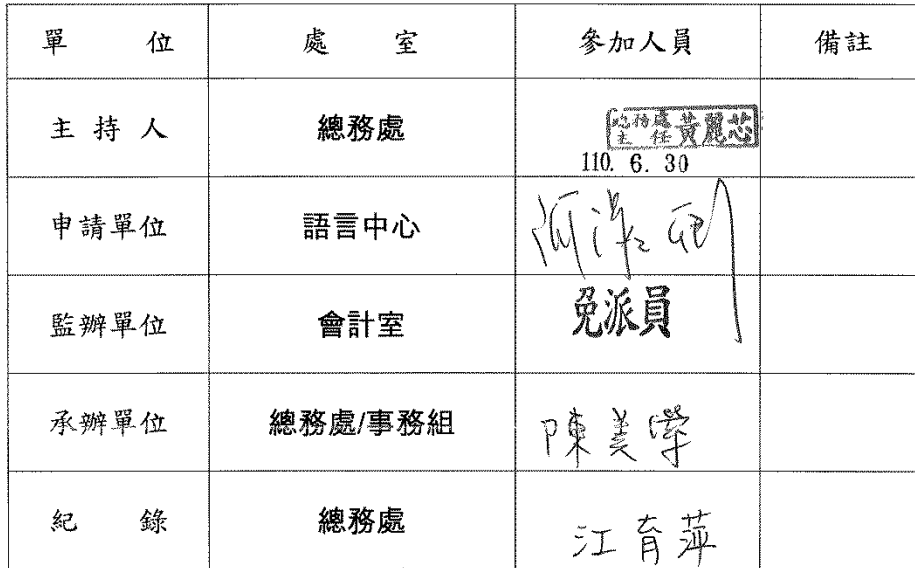 單 位 處 室 參加人員 備註
主 持 人 總務處 總務處主任 黃麗芯
110. 6. 30
申請單位 語言中心
監辦單位 會計室 免派員
承辦單位 總務處/事務組 陳美
紀 錄 總務處 江育萍